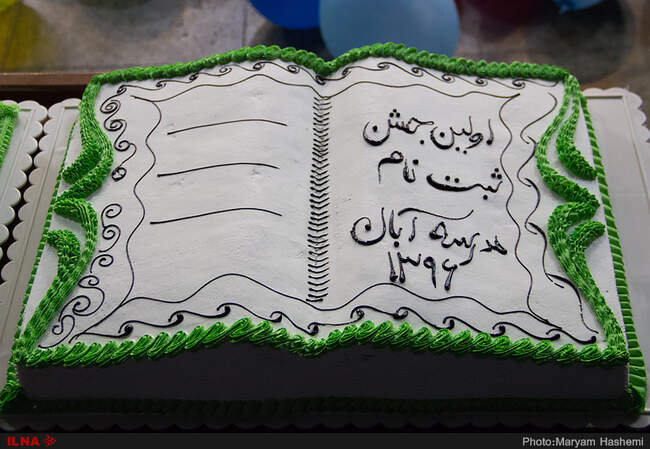 اولین جشن
ثبت نام
مدرسه آبان
۱۳۹۶
ILNA
Photo:Maryam Hashemi